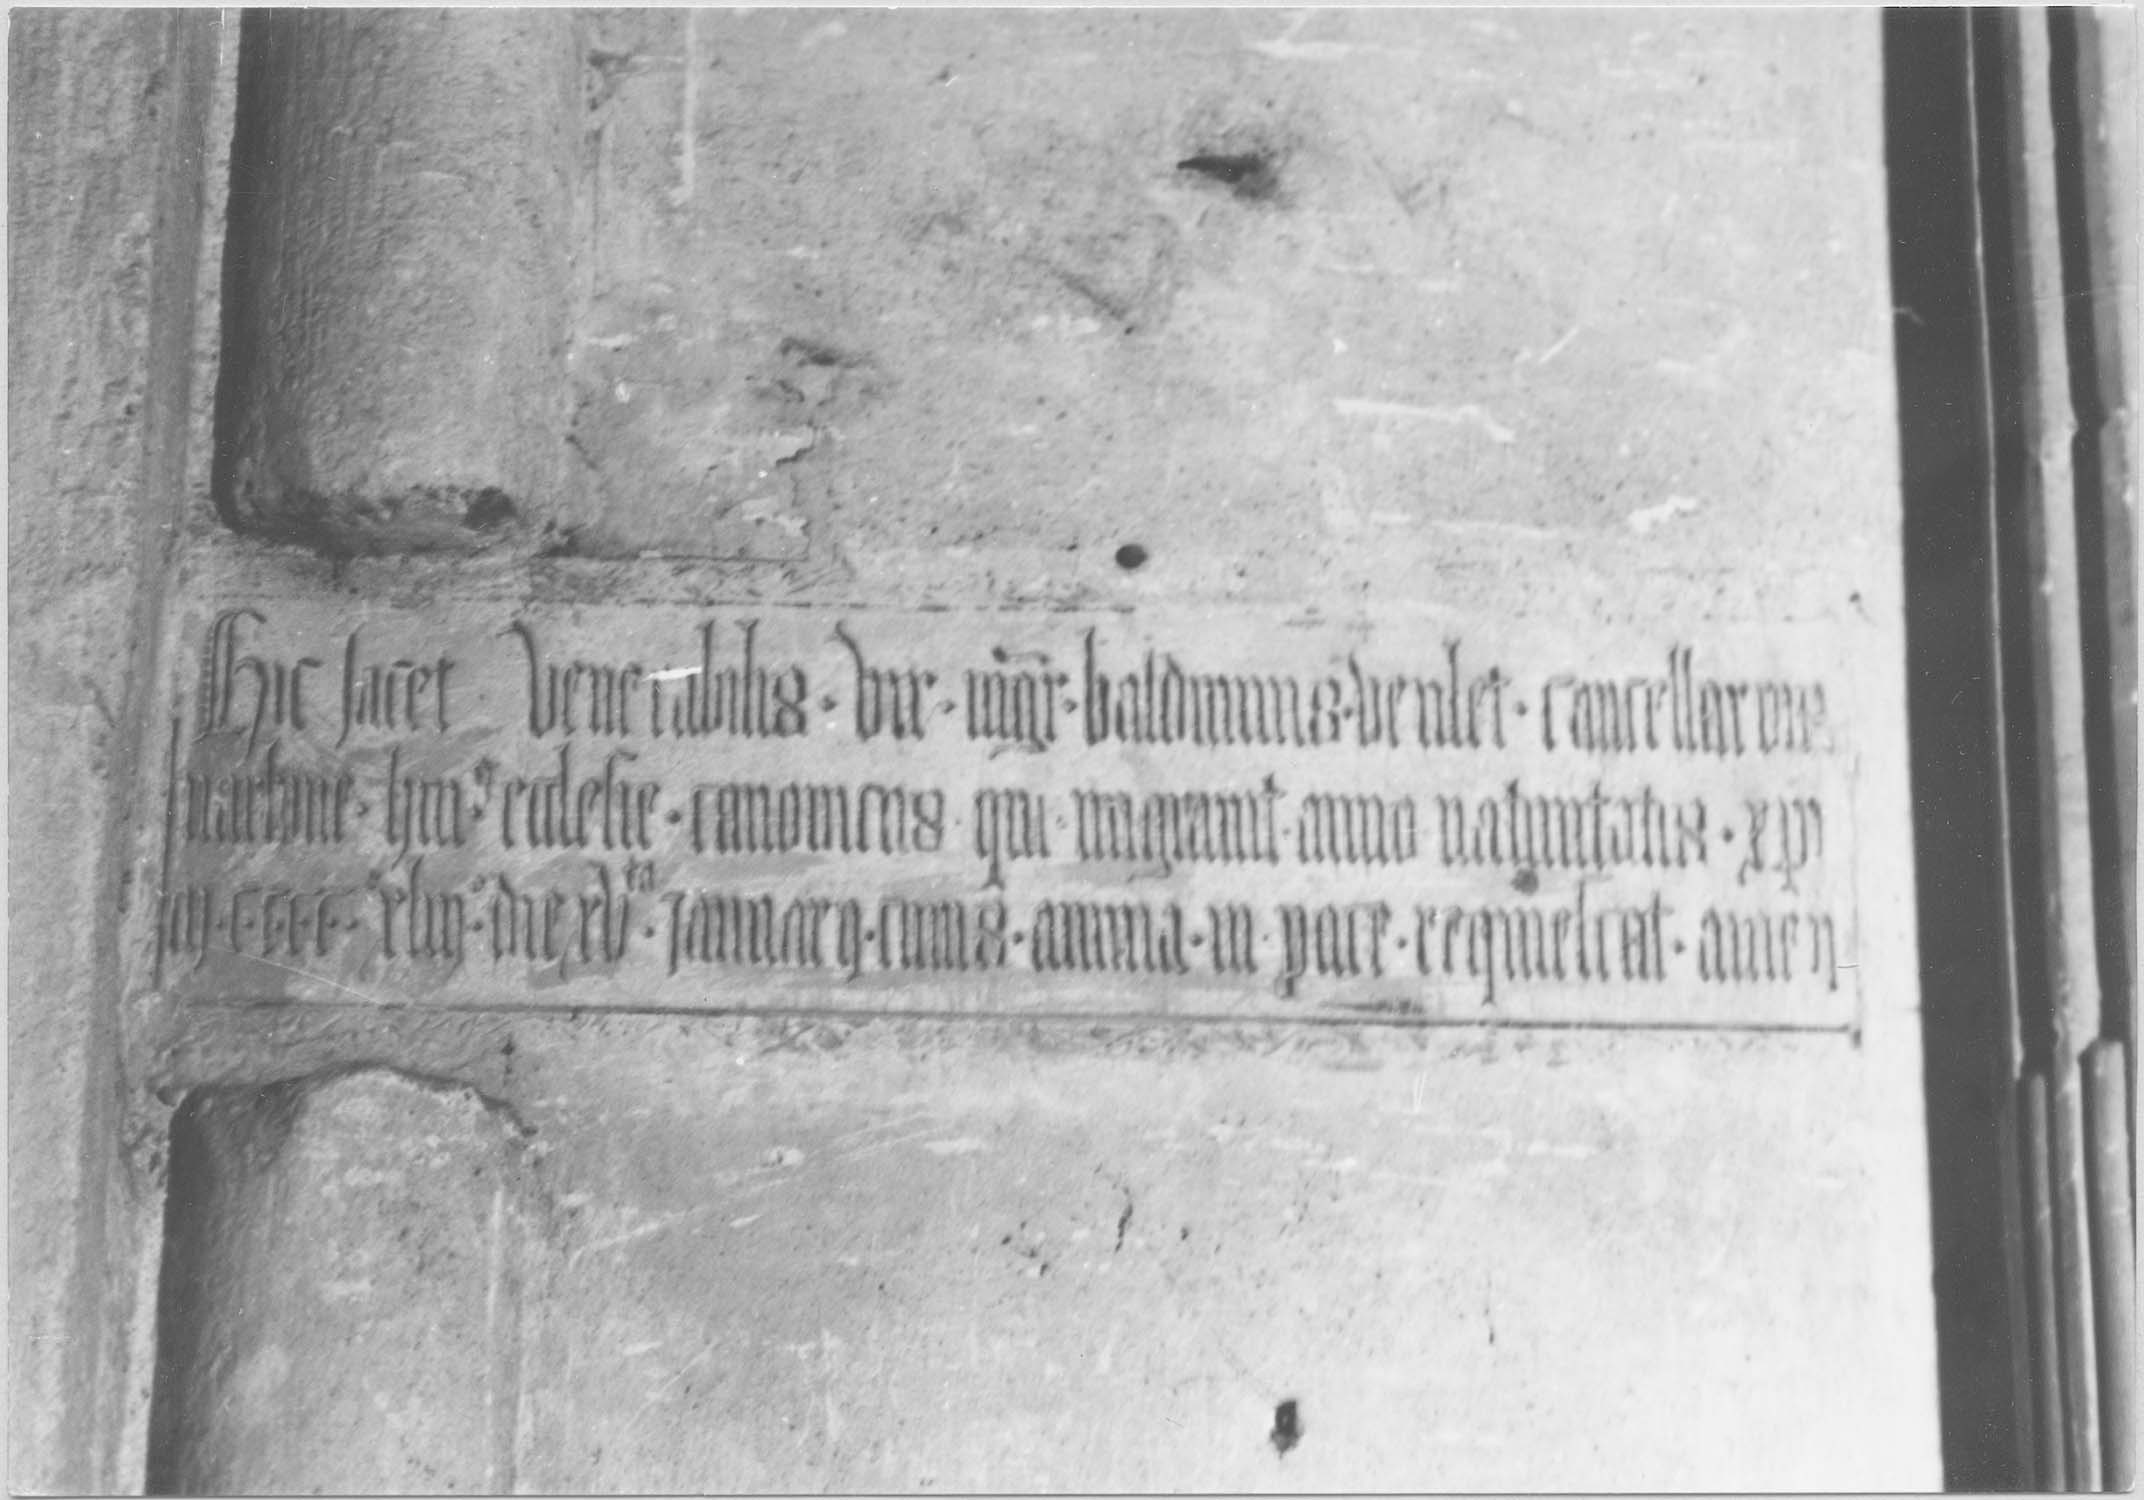 Hic iacet venerabilis · vir · mgr · baldiuinus · venlet · cancellarius
huiꝰ ecclesie · canonicus · qui · migrauit · anno natiuitatis · xpi
m · c · c · c · c · xliij · die xvta · Januarij · cuius · anima · in · pace · requiescat · amen